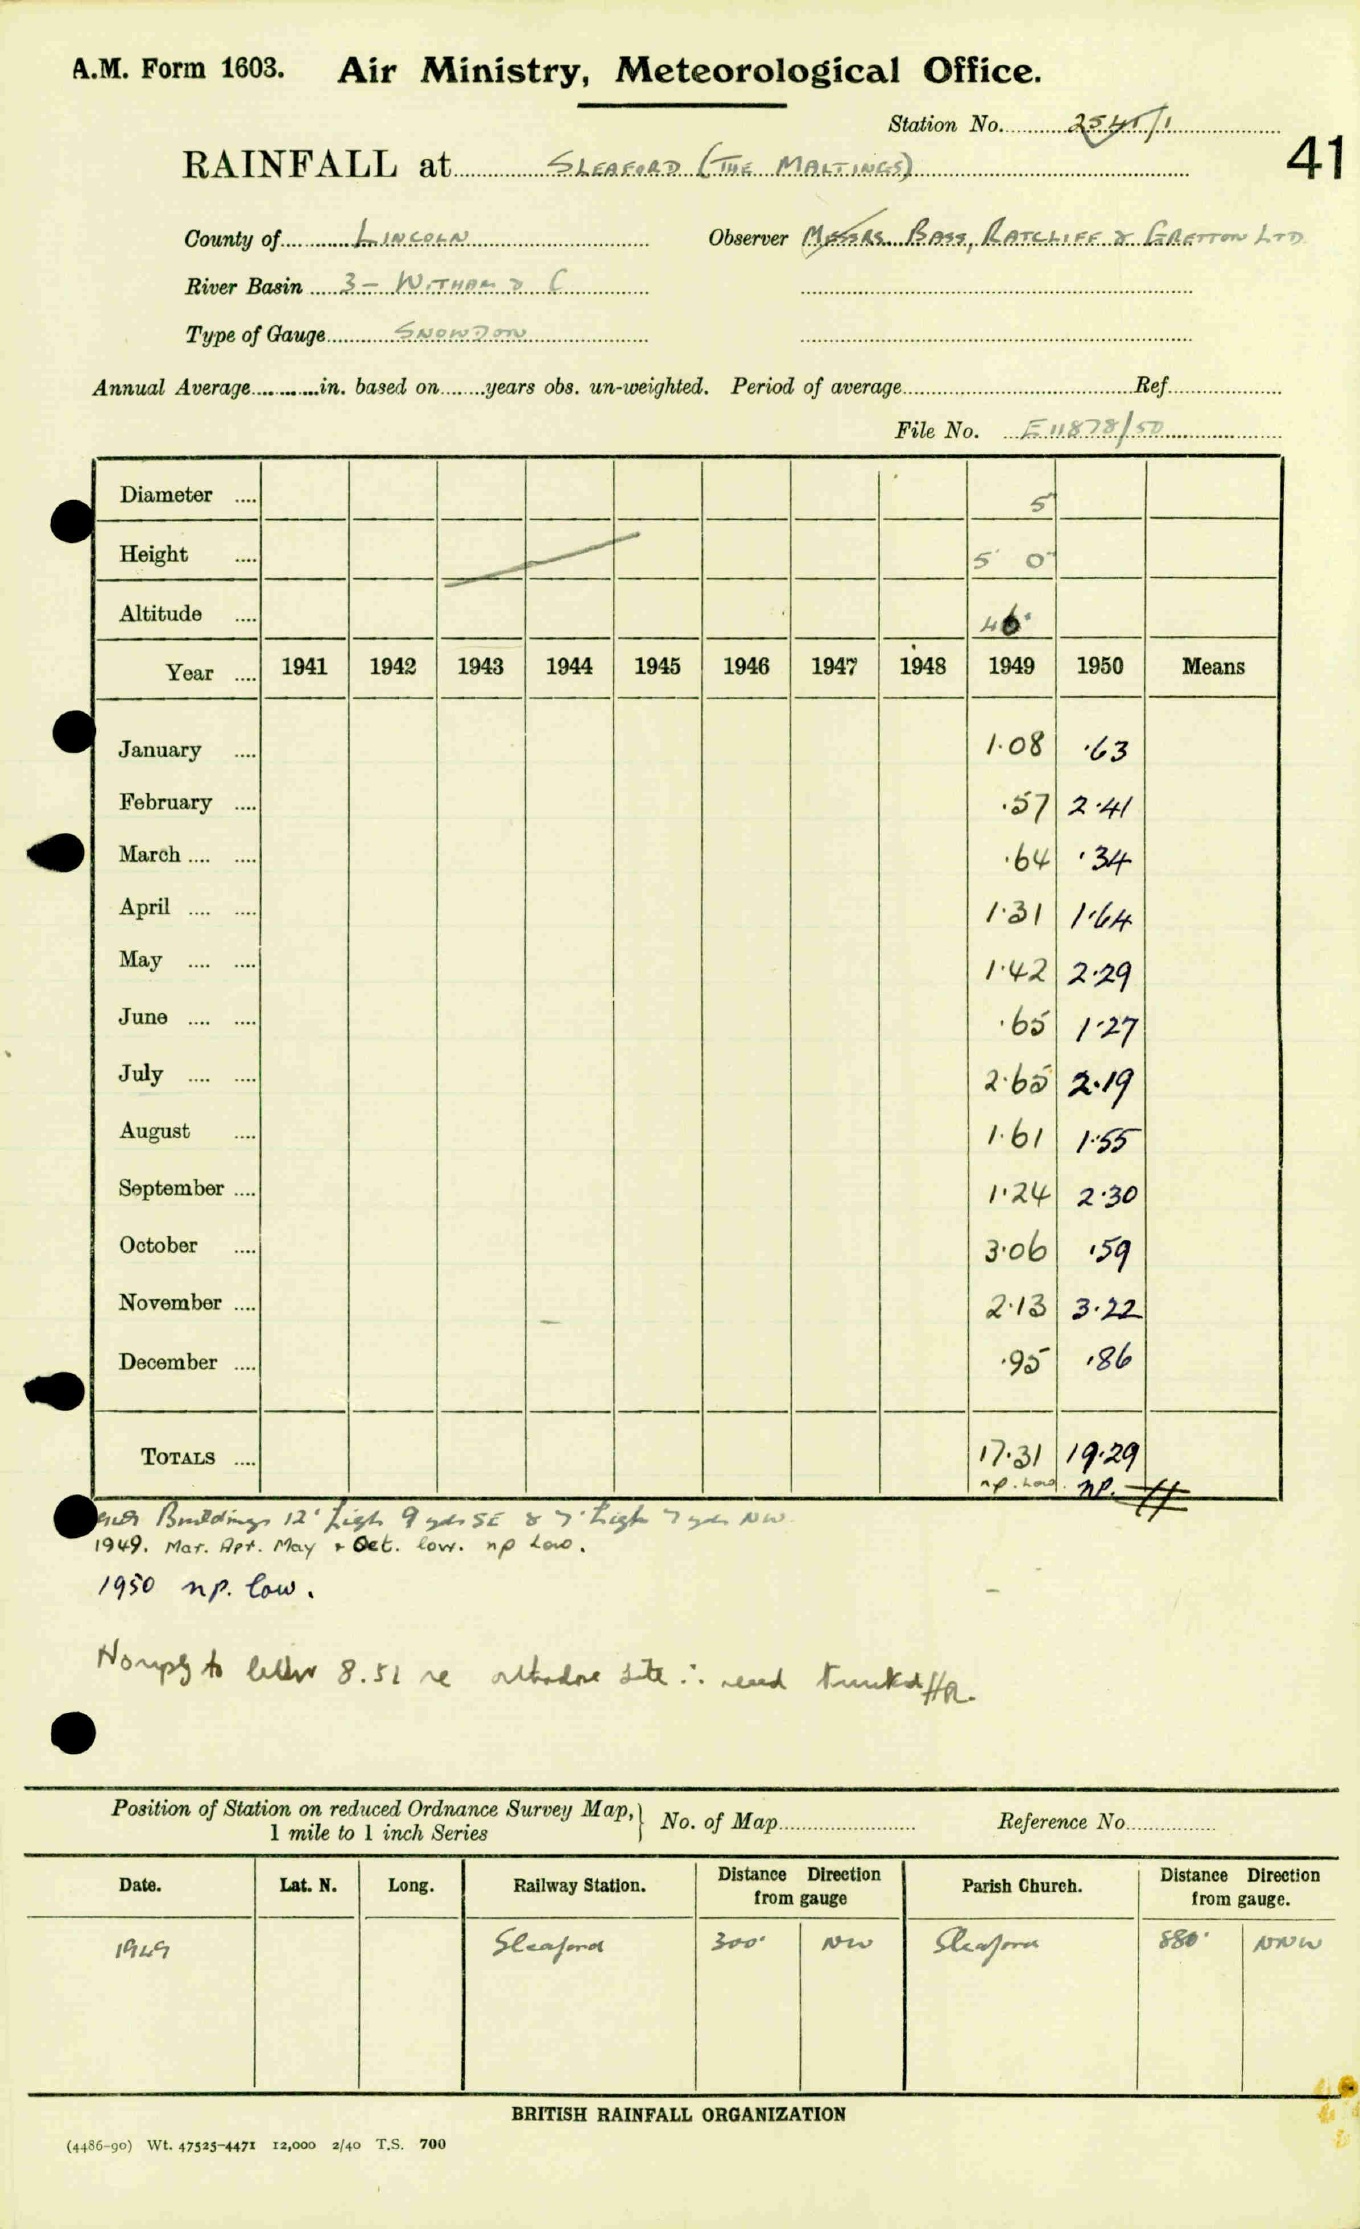 A.M. Form 1603. Air Ministry, Meteorological Office.
Station No. 2541/1
41
RAINFALL at SLEAFORD (THE MALTINGS)
County of LINCOLN Observer MESSRS. BASS, RATCLIFF & GRETTON LTD
River Basin 3 – WITHAM & C
Type of Gauge SNOWDON
Annual Average in. based on years obs. un-weighted. Period of average Ref
File No. E11878/50
Diameter .... 5"
Height .... 5' 0"
Altitude .... 46'
Year .... 1941 1942 1943 1944 1945 1946 1947 1948 1949 1950 Means
January .... 1.08 .63
February .... .57 2.41
March .... .... .64 .34
April .... .... 1.31 1.64
May .... .... 1.42 2.29
June .... .... .65 1.27
July .... .... 2.65 2.19
August .... 1.61 1.55
September .... 1.24 2.30
October .... 3.06 .59
November .... 2.13 3.22
December .... .95 .86
TOTALS .... 17.31 19.29
np. Low. np.
Buildings 12' high 9 yds SE & 7' high 7 yds NW
1949. Mar. Apr. May & Oct. low. np Low.
1950 np. low.
No reply to letter 8.51 re site ∴ HR.
Position of Station on reduced Ordnance Survey Map, 1 mile to 1 inch Series } No. of Map Reference No.
Date. Lat. N. Long. Railway Station. Distance Direction from gauge Parish Church. Distance Direction from gauge.
1949 Sleaford 300' NW Sleaford 880' NNW
BRITISH RAINFALL ORGANIZATION
(4486-90) Wt. 47525-4471 12,000 2/40 T.S. 700